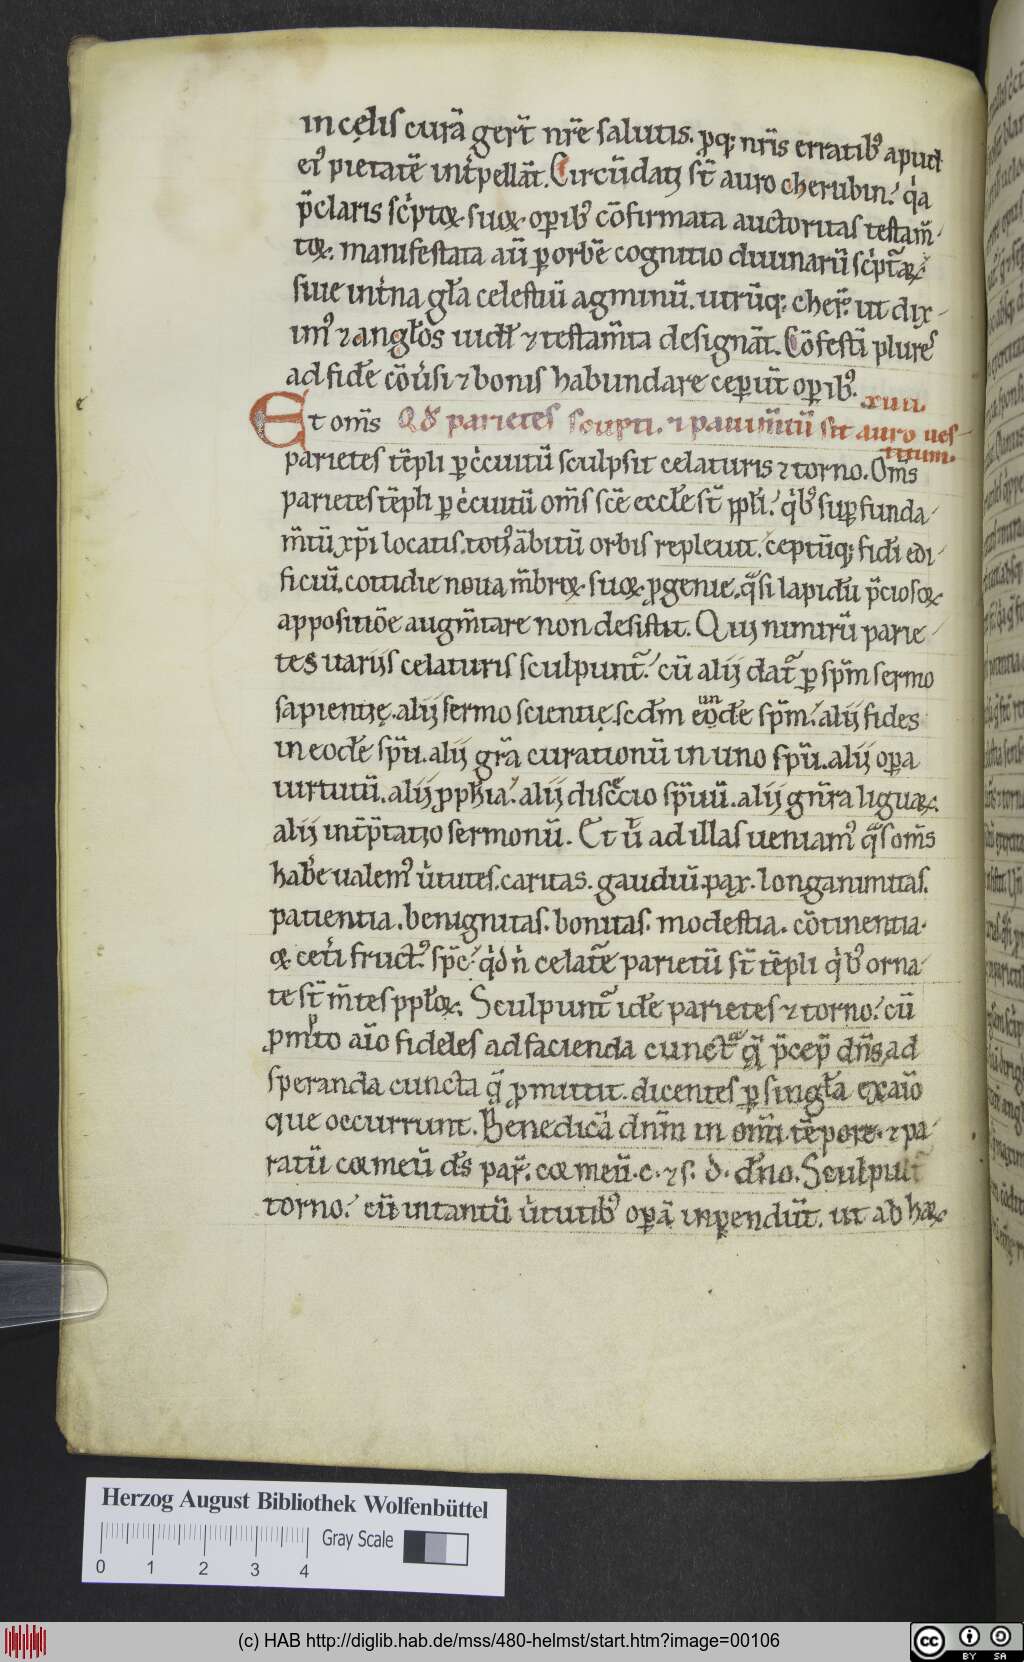 in cęlis curā gerūt nr̄e salutis. ꝓq; nr̄is erratibꝰ apud
eiꝰ pietatē int̄pellāt. Circūdata st̄ auro cherubin. qⁱa
p̄claris sc̄ptoꝝ suoꝝ opibꝰ cōfirmata auctoritas testam̄
toꝝ. manifestata aū ꝑ orbē cognitio diuinarū sc̄pt̄aꝝ
siue int̄na gł̄a celestiū agminū. utrūq; cher̄. ut dix
imꝰ ⁊ angłos uidł ⁊ testam̄ta designāt. Cōfestī plures
ad fidē cōūsi ⁊ bonis habundare ceperūt opibꝰ.
xiiii.
Et om̄s Qđ parietes scupti. ⁊ pauim̄tū sit auro ues
titum.
parietes tēpli ꝑ c̄cuitū sculpsit celaturis ⁊ torno. Om̄s
parietes tēpli ꝑ c̄cuitū om̄s sc̄e eccłe st̄ ppłi. qⁱbꝰ suꝑ funda
m̄tū xp̄i locatis. totꝰ ābitū orbis repleuit. ceptūq; fidi edi
ficiū. cottidie noua m̄broꝝ suoꝝ ꝓgenie. qᵃsi lapidū p̄ciosoꝝ
appositiōe augm̄tare non desistit. Qui nimirū parie
tes uariis celaturis sculpunt̄. cū alii dat̄ ꝑ spm̄ sermo
sapientię. alii sermo scientię. scdm̄ eūdē spm̄. alii fides
in eodē spū. alii gr̄a curationū in uno spū. alii oꝑa
uirtutū. alii ꝓph̄ia. alii disc̄cio spirituū. alii gn̄ra liguaꝝ.
alii int̄p̄tatio sermonū. Et ū ad illas ueniamꝰ qᵃs om̄s
hab̄e ualemꝰ ūtutes. caritas. gaudiū. pax. longanimitas.
patientia. benignitas. bonitas. modestia. cōtinentia.
⁊ cet̄i fructꝰ. spc̄. qⁱd n̄ celatē parietū st̄ tēpli qⁱbꝰ orna
te st̄ m̄tes ppłoꝝ. Sculpunt̄ idē parietes ⁊ torno. cū
ꝓmto aīo fideles ad facienda cuncta q̄ p̄cep̄ dn̄s, ad
speranda cuncta q̄ ꝓmittit. dicentes ꝑ singł̄a ex aīo
que occurrunt. Benedicā dnm̄ in om̄i tēpore. ⁊ pa
ratū cor meū ds̄ par̄. cor meū. c. ⁊ s. d. dn̄o. Sculpūt̄
torno. cū intantū ūtutibꝰ oꝑā inpendūt. ut ab haꝝ
Herzog August Bibliothek Wolfenbüttel
0 1 2 3 4 Gray Scale
(c) HAB http://diglib.hab.de/mss/480-helmst/start.htm?image=00106
cc BY SA